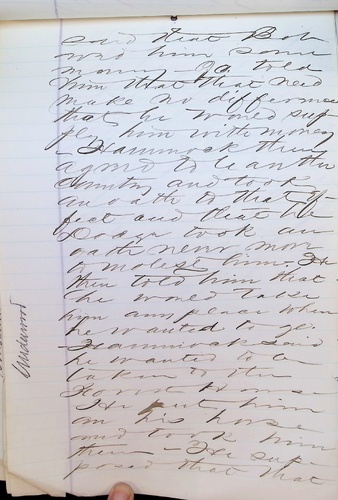 said that Bob
owed him some
money - Og told
him that that need
make no difference
that he would sup
ply him with money
Hammock then
agreed to leave the
country and took
an oath to that ef-
fect and that he
took an
oath never more
to molest him. He
then told him that
he would take
hym any place when
he wanted to go.
Hammock said
he wanted to be
taken to the
House
He put him
on his horse
and took him
there - He sup
posed that that
Underwood